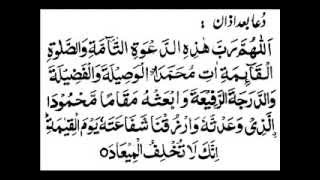 دُعا بعد اذان :
اَللّٰهُمَّ رَبَّ هٰذِهِ الدَّعْوَةِ التَّآمَّةِ وَالصَّلٰوةِ
الْقَآئِمَةِ اٰتِ مُحَمَّدَاۨ الْوَسِيْلَةَ وَالْفَضِيْلَةَ
وَالدَّرَجَةَ الرَّفِيْعَةَ وَابْعَثْهُ مَقَامًا مَّحْمُوْدَاۨ
الَّذِيْ وَعَدْتَّهٗ وَارْزُقْنَا شَفَاعَتَهٗ يَوْمَ الْقِيٰمَةِ
اِنَّكَ لَا تُخْلِفُ الْمِيْعَادَ ○